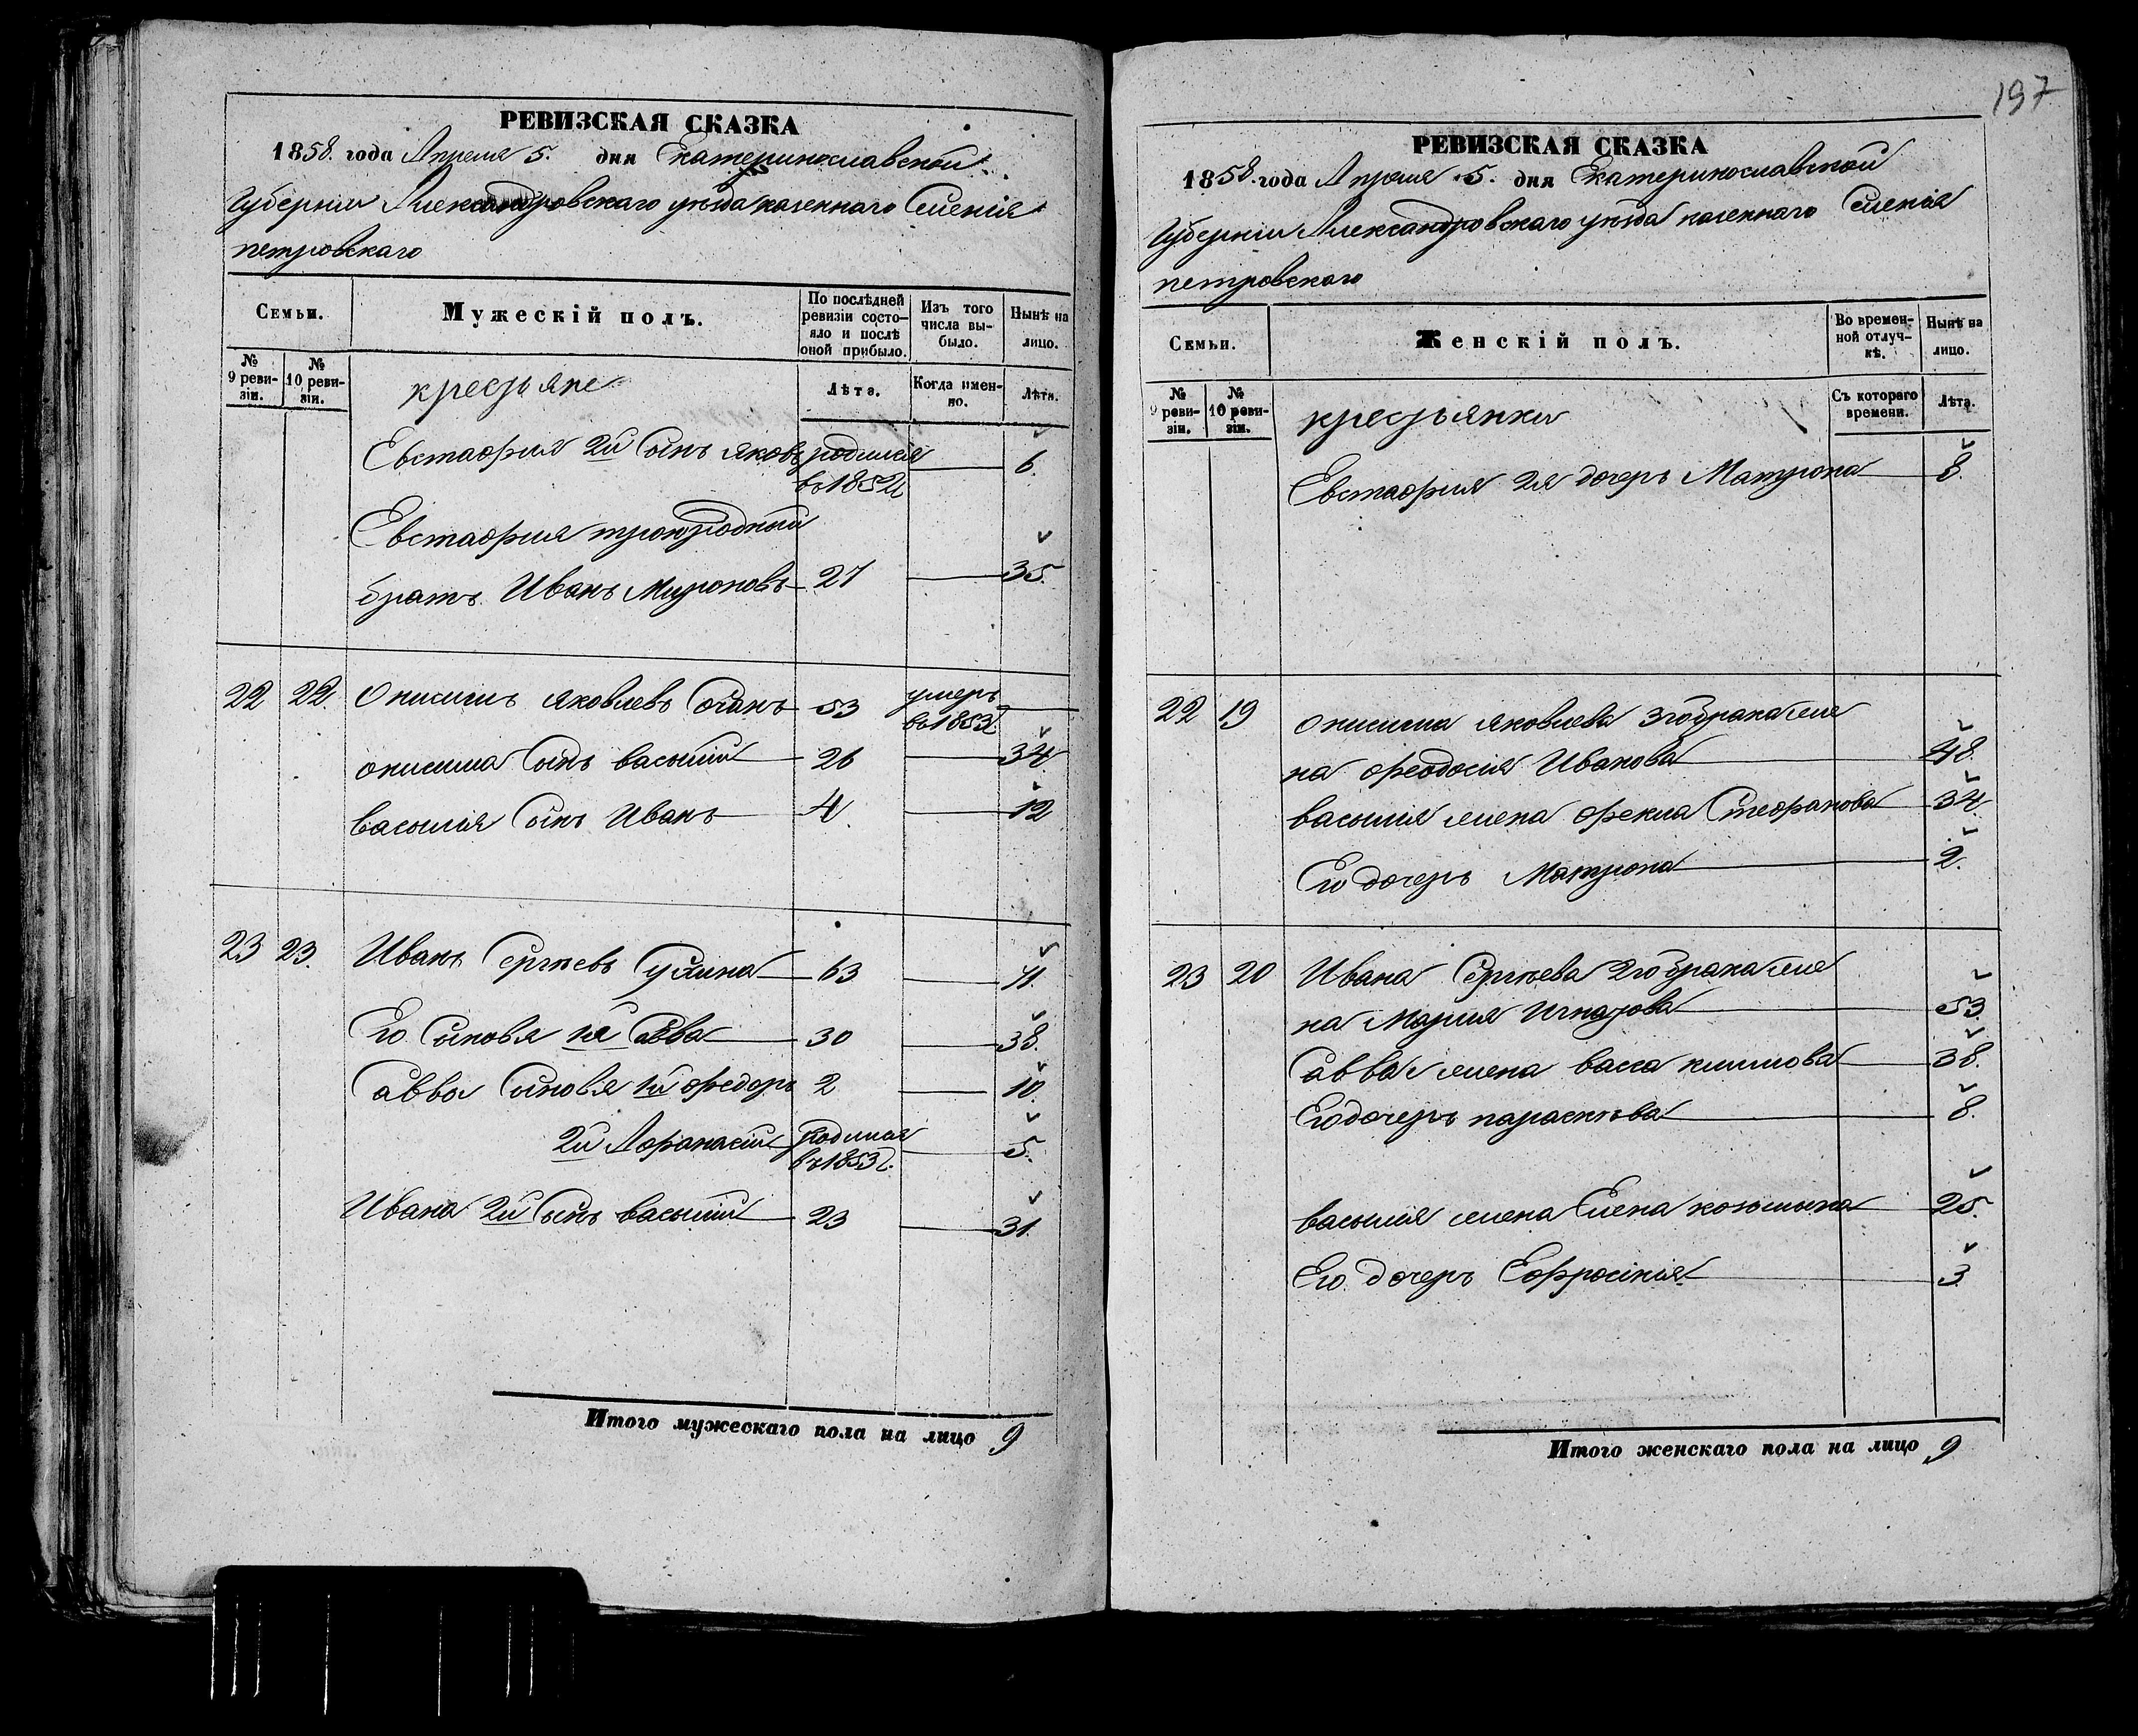 РЕВИЗСКАЯ СКАЗКА
1858. года Апреля 5. дня Екатеринославской
Губернии Александровскаго уѣзда казеннаго Селенія
петровскаго
Семьи.
Мужескій полъ.
По послѣдней ревизіи состо-
яло и послѣ
оной прибыло.
Изъ того
числа вы-
было.
Нынѣ на
лицо.
№
9 реви-
зіи.
№
10 реви-
зіи.
крестьяне
Лѣта.
Когда имен-
но.
Лѣта.
Евстафия 2й Сынъ яковъ родился въ 1852 6.
Евстафия троюродный
братъ Иванъ Мироновъ 27 35.
22 22. Онисимъ Яковлевъ 53 умеръ въ 1853
онисима Сынъ василий 26 34
василия Сынъ Иванъ 4. 12
23 23. Иванъ Сергѣевъ 63 71.
Его Сыновья 1й Савва 30 38.
Саввы Сыновья 1й федоръ 2 10.
2й Афанасий родился въ 1853 5.
Ивана 2й Сынъ василий 23 31.
Итого мужескаго пола на лицо 9
197
РЕВИЗСКАЯ СКАЗКА
1858. года Апреля 5. дня Екатеринославской
Губернии Александровскаго уѣзда казеннаго Селенія
петровскаго
Семьи.
Женскій полъ.
Во времен-
ной отлуч-
кѣ.
Нынѣ на
лицо.
№
9 реви-
зіи.
№
10 реви-
зіи.
крестьянки
Съ котораго
времени.
Лѣта.
Евстафия 2я дочерь Матрона 8.
22 19 онисима яковлева 3го брака же
на феодосия Иванова 48.
василия жена фекла Стефанова 34.
Его дочерь Матрона 2.
23 20 Ивана Сергѣева 2го брака же
на Мария Игнатова 53.
Саввы жена васса климова 38.
Его дочерь параскѣва 8.
василия жена Елена козьмина 25.
Его дочерь Ефросінія 3
Итого женскаго пола на лицо 9